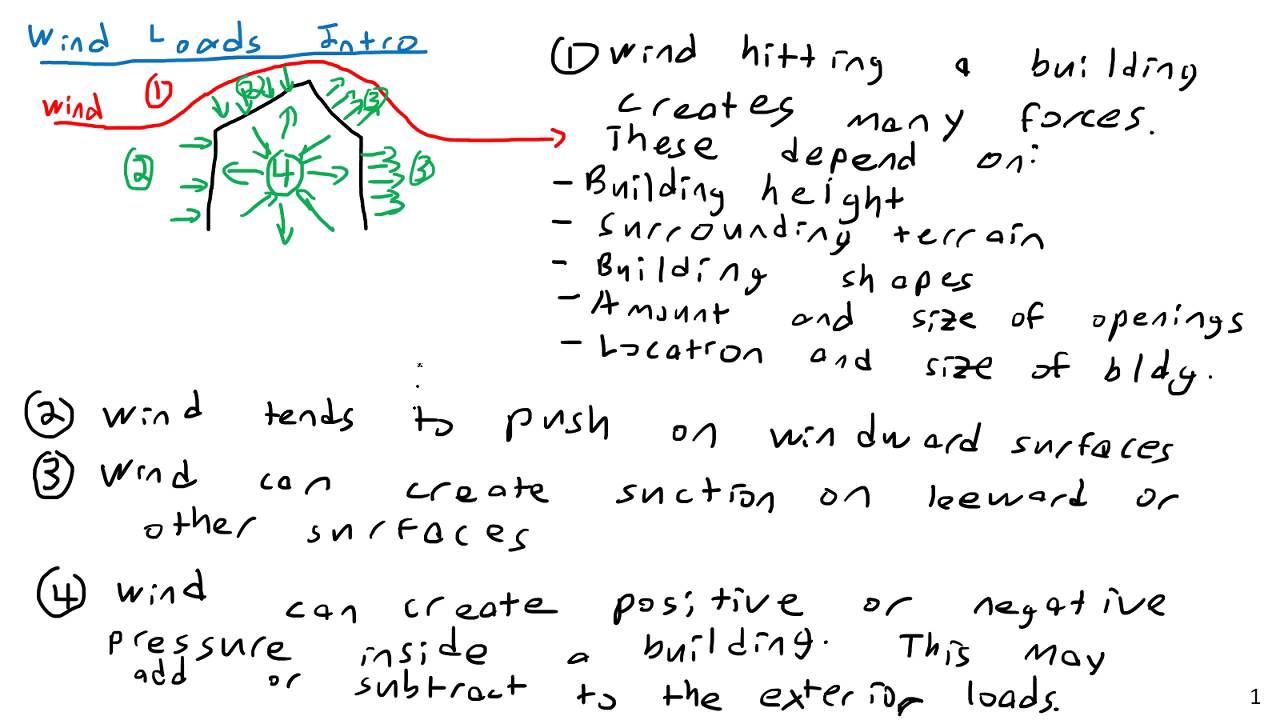 Wind Loads Intro
wind
①
②
②
③
③
④
① Wind hitting a building
creates many forces.
These depend on:
- Building height
- Surrounding terrain
- Building shapes
- Amount and size of openings
- Location and size of bldg.
② Wind tends to push on windward surfaces
③ Wind can create suction on leeward or
other surfaces
④ Wind can create positive or negative
pressure inside a building. This may
add or subtract to the exterior loads.
1